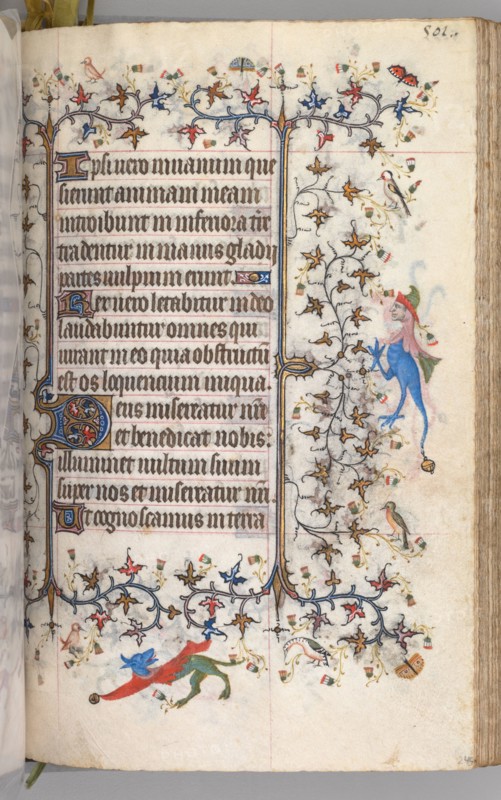 Ipsi uero in uanum que
sierunt animam meam
introibunt in inferiora tr̄e
tradentur in manus gladij
partes uulpium erunt.
Rex uero letabitur in deo
laudabuntur omnes qui
iurant in eo quia obstructū
est os loquencium iniqua.
Deus misereatur n̄ri
et benedicat nobis:
illuminet uultum suum
super nos et misereatur n̄ri.
Ut cognoscamus in terra